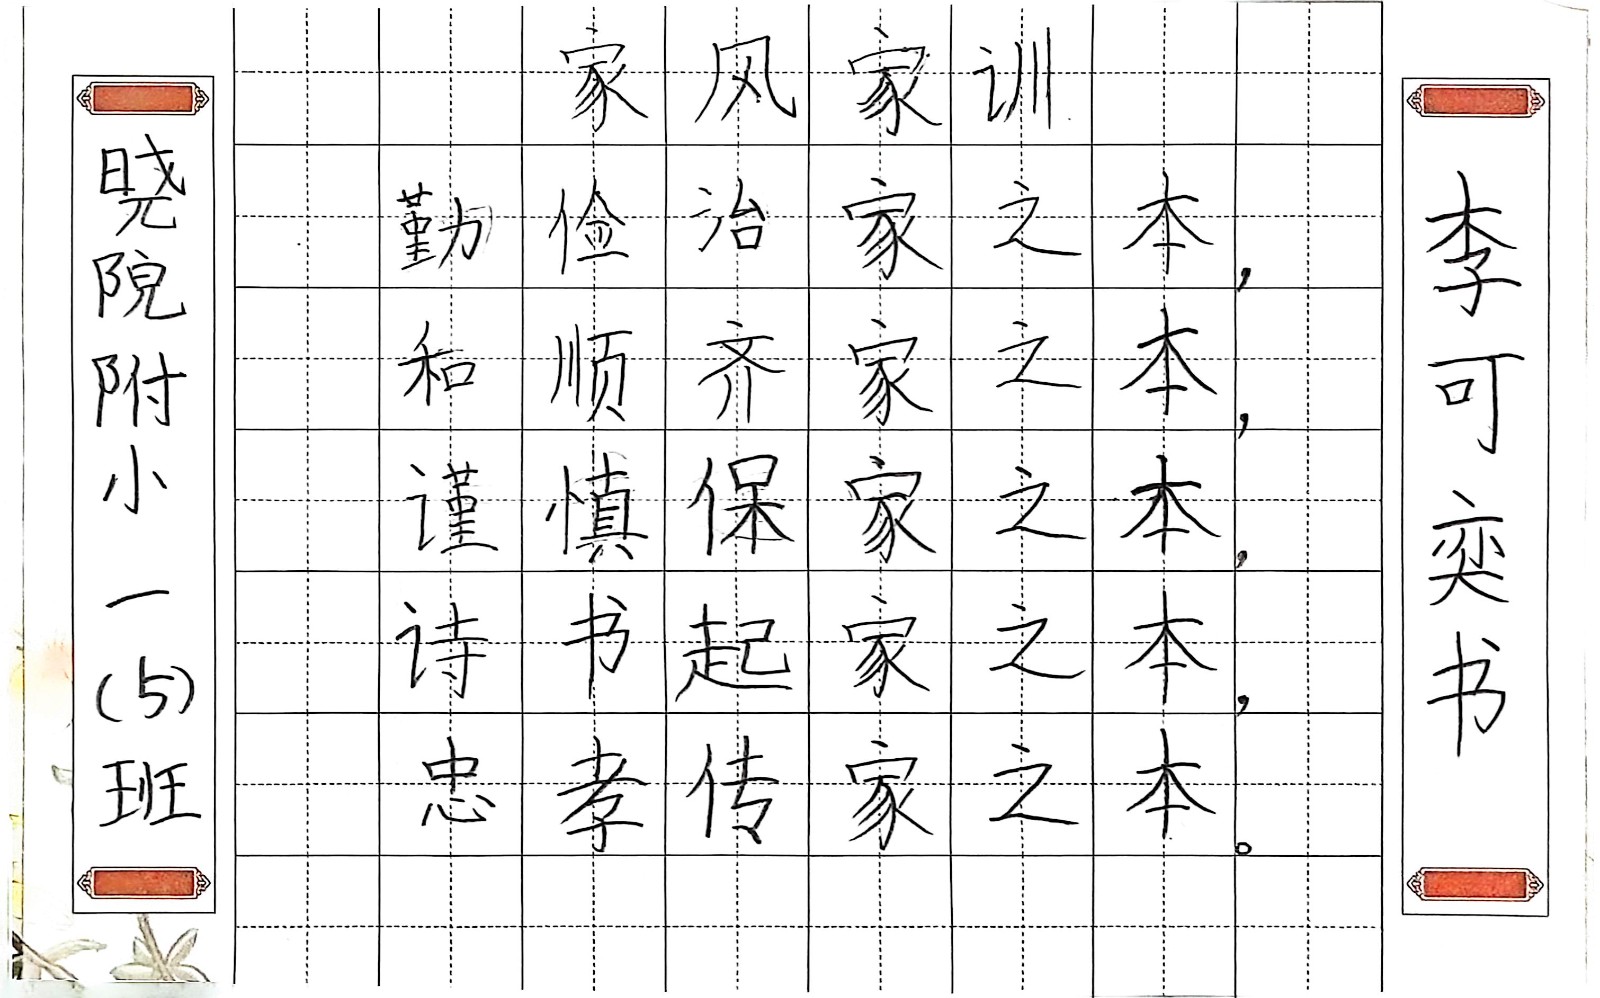 家风家训
勤俭治家之本，
和顺齐家之本，
谨慎保家之本，
诗书起家之本，
忠孝传家之本。
晓院附小一(5)班
李可奕书